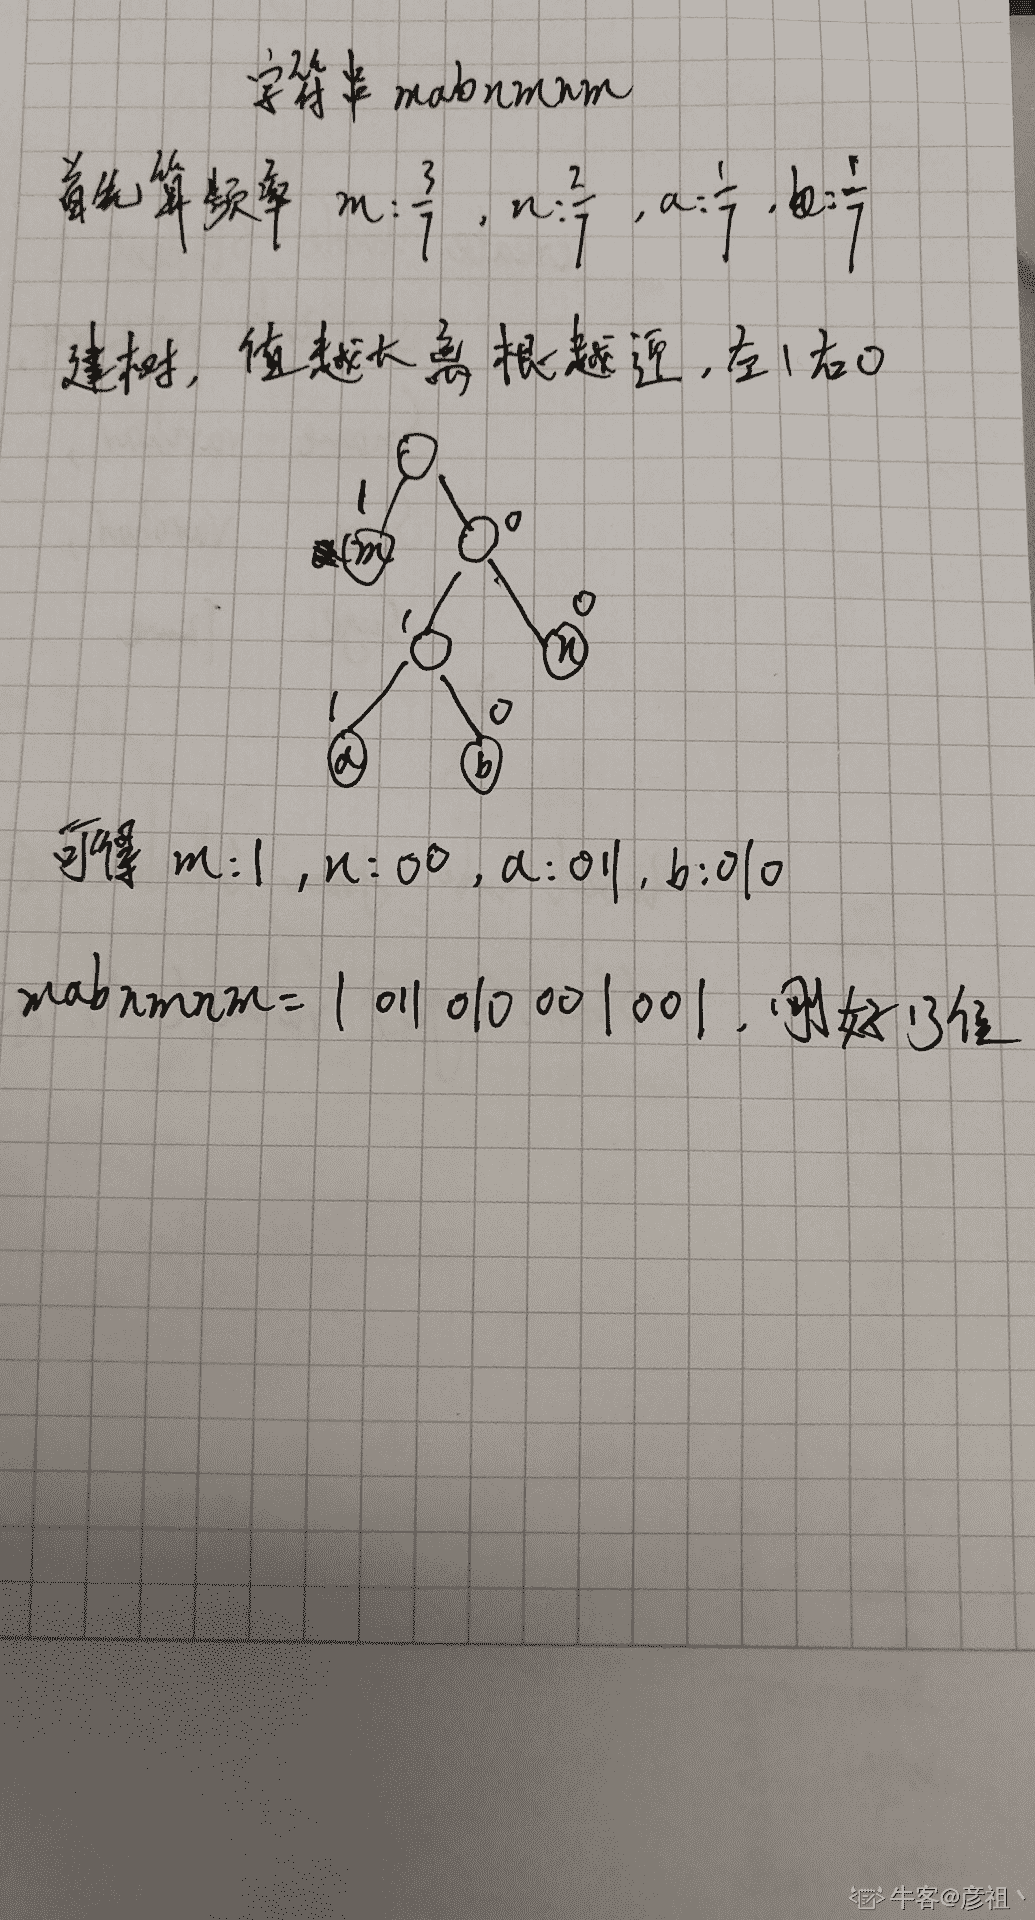 字符串 mabnmnm
首先算频率 m:3/7 , n:2/7 , a:1/7 , b:1/7
建树, 值越大离根越近, 左1右0
1
0
m
1
0
n
1
0
a
b
可得 m:1 , n:00 , a:011 , b:010
mabnmnm= 1 011 010 00 1 00 1 , 刚好13位
牛客@彦祖丶